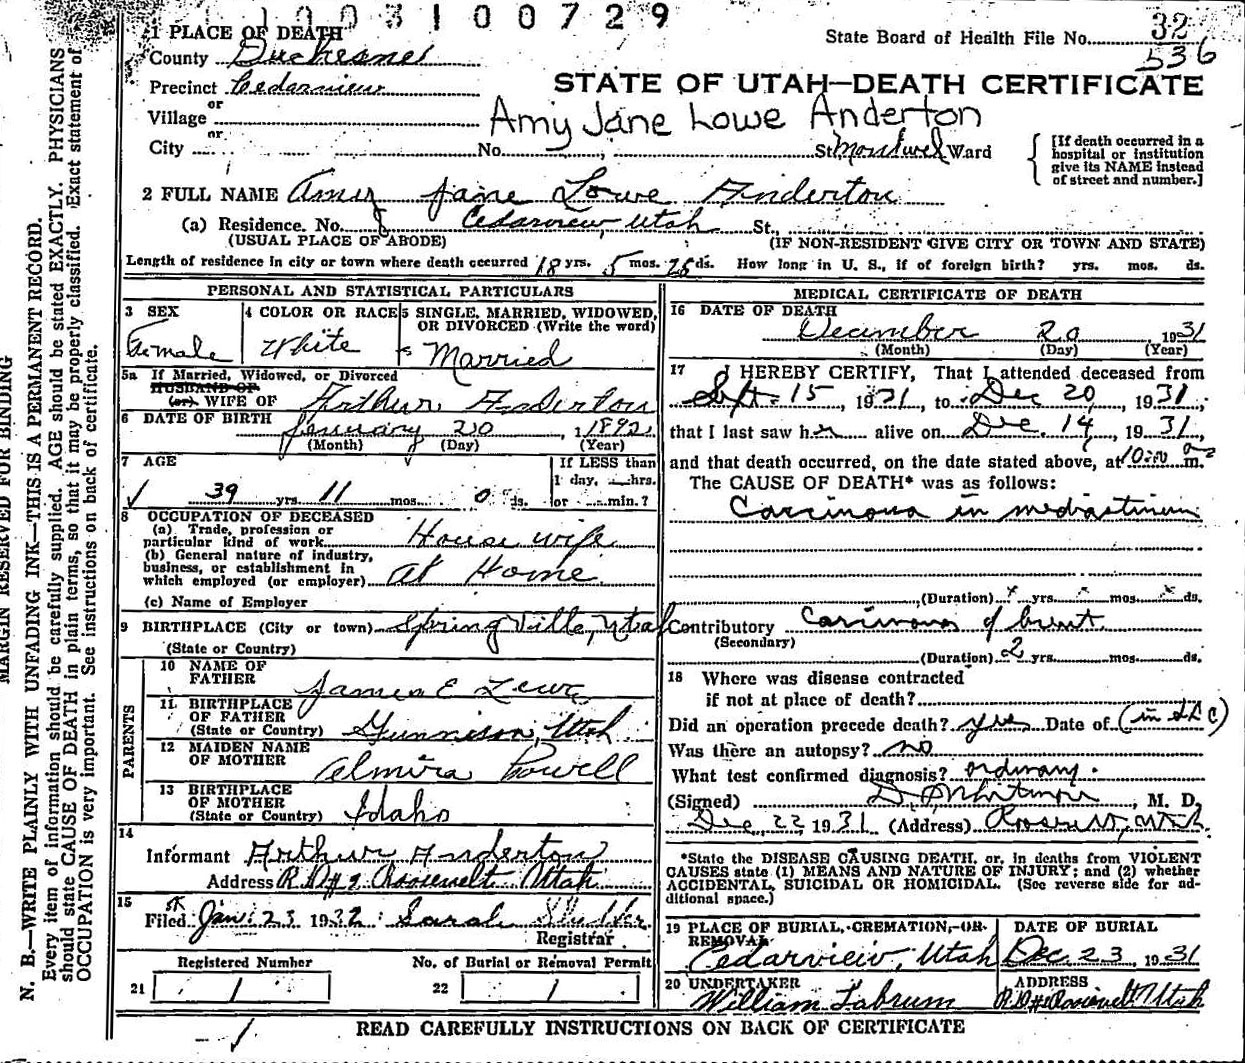 1003100729
1 PLACE OF DEATH
State Board of Health File No. 32
536
County Duchesne
Precinct Cedarview
STATE OF UTAH—DEATH CERTIFICATE
or
Village
Amy Jane Lowe Anderton
or
City No. St. Ward
[If death occurred in a
hospital or institution
give its NAME instead
of street and number.]
2 FULL NAME Amy Jane Lowe Anderton
(a) Residence. No. Cedarview, Utah St.,
(USUAL PLACE OF ABODE) (IF NON-RESIDENT GIVE CITY OR TOWN AND STATE)
Length of residence in city or town where death occurred 18 yrs. 5 mos. 25 ds. How long in U. S., if of foreign birth? yrs. mos. ds.
PERSONAL AND STATISTICAL PARTICULARS
3 SEX
Female
4 COLOR OR RACE
White
5 SINGLE, MARRIED, WIDOWED,
OR DIVORCED (Write the word)
Married
5a If Married, Widowed, or Divorced
HUSBAND OF
(or) WIFE OF Arthur Anderton
6 DATE OF BIRTH January 20 1892
(Month) (Day) (Year)
7 AGE
39 yrs. 11 mos. 0 ds.
If LESS than
1 day, hrs.
or min.?
8 OCCUPATION OF DECEASED
(a) Trade, profession or
particular kind of work House wife
(b) General nature of industry,
business, or establishment in
which employed (or employer) At Home
(c) Name of Employer
9 BIRTHPLACE (City or town) Spring Ville, Utah
(State or Country)
PARENTS
10 NAME OF
FATHER James E Lowe
11 BIRTHPLACE
OF FATHER
(State or Country) Gunnison, Utah
12 MAIDEN NAME
OF MOTHER Almira Powell
13 BIRTHPLACE
OF MOTHER
(State or Country) Idaho
14
Informant Arthur Anderton
Address R.D#2 Roosevelt Utah
15
Filed Jan. 23 1932 Sarah
Registrar
Registered Number No. of Burial or Removal Permit
21 22
MEDICAL CERTIFICATE OF DEATH
16 DATE OF DEATH
December 20 1931
(Month) (Day) (Year)
17 I HEREBY CERTIFY, That I attended deceased from
Sept. 15, 1931, to Dec 20, 1931,
that I last saw her alive on Dec. 14, 1931,
and that death occurred, on the date stated above, at 10:00 a m.
The CAUSE OF DEATH* was as follows:
Carcinoma in mediastinum
(Duration) yrs. mos. ds.
Contributory Carcinoma of breast
(Secondary)
(Duration) 2 yrs. mos. ds.
18 Where was disease contracted
if not at place of death?
Did an operation precede death? yes Date of (in SLC)
Was there an autopsy? no
What test confirmed diagnosis? ordinary.
(Signed) Whitmore, M. D.
Dec, 22 1931 (Address) Roosevelt, Utah
*State the DISEASE CAUSING DEATH, or, in deaths from VIOLENT
CAUSES state (1) MEANS AND NATURE OF INJURY; and (2) whether
ACCIDENTAL, SUICIDAL OR HOMICIDAL. (See reverse side for ad-
ditional space.)
19 PLACE OF BURIAL, CREMATION, OR
REMOVAL
Cedarview, Utah
DATE OF BURIAL
Dec 23, 1931
20 UNDERTAKER
William Labrum
ADDRESS
R.D#1 Roosevelt Utah
READ CAREFULLY INSTRUCTIONS ON BACK OF CERTIFICATE
MARGIN RESERVED FOR BINDING
N. B.—WRITE PLAINLY WITH UNFADING INK—THIS IS A PERMANENT RECORD.
Every item of information should be carefully supplied. AGE should be stated EXACTLY. PHYSICIANS
should state CAUSE OF DEATH in plain terms, so that it may be properly classified. Exact statement of
OCCUPATION is very important. See instructions on back of certificate.